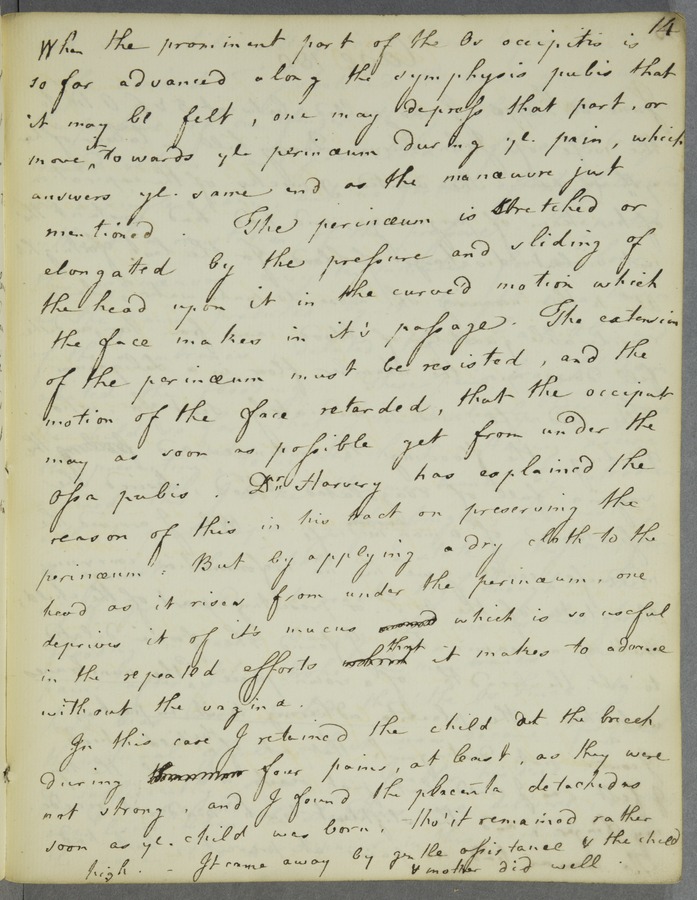 14
When the prominent part of the Os occipitis is
so far advanced along the symphysis pubis that
it may be felt, one may depress that part, or
move it towards ye perinœum during ye. pain, which
answers ye. same end as the manœuvre just
mentioned. The perinœum is stretched or
elongated by the pressure and sliding of
the head upon it in the curved motion which
the face makes in it's passage. The extension
of the perinœum must be resisted, and the
motion of the face retarded, that the occiput
may as soon as possible get from under the
ossa pubis. Dr. Harvery has explained the
reason of this in his tract on preserving the
perinœum: But by applying a dry cloth to the
head as it rises from under the perinœum, one
deprives it of it's mucus which is so useful
in the repeated efforts that it makes to advance
without the vagina.
In this case I retained the child at the breech
during four pains, at least, as they were
not strong, and I found the placenta detached as
soon as ye. child was born, tho' it remained rather
high. - It came away by gentle assistance & the child
& mother did well.